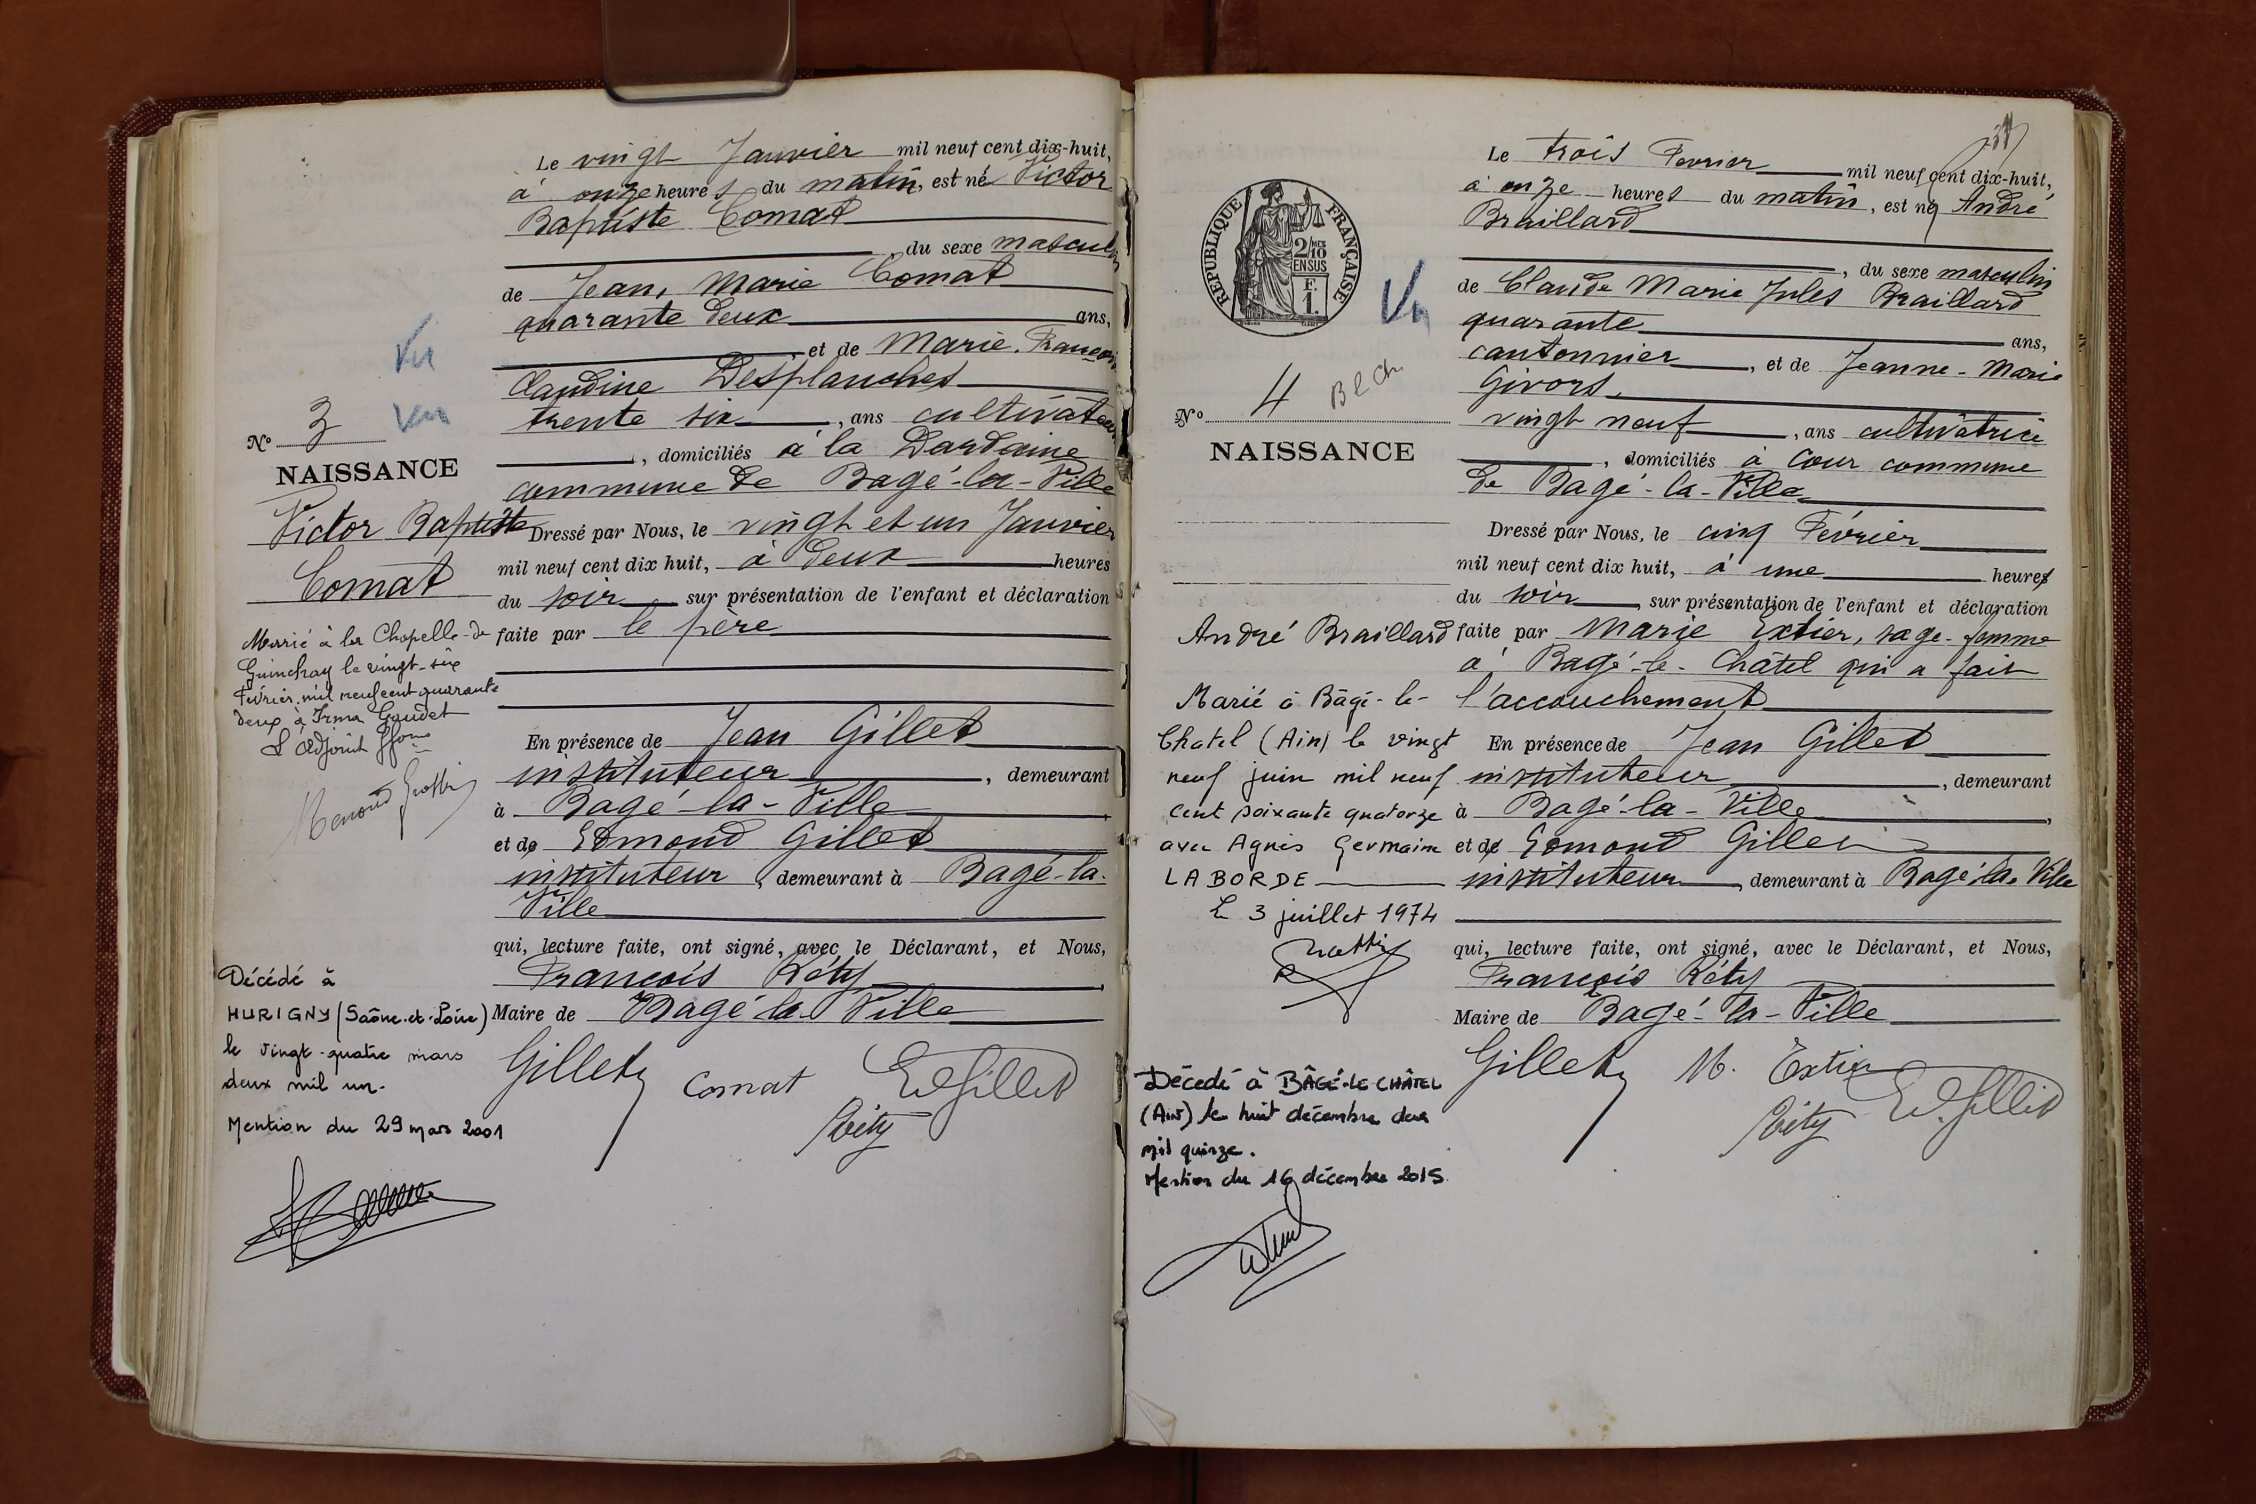 Le vingt Janvier mil neuf cent dix-huit,
à onze heures du matin, est né Victor
Baptiste Comat
, du sexe masculin
de Jean, Marie Comat
quarante deux ans,
et de Marie. Françoise
Claudine Desplanches
trente six, ans cultivateurs
, domiciliés à la Dardaine
commune de Bagé-la-Ville
Dressé par Nous, le vingt et un Janvier
mil neuf cent dix huit, à deux heures
du soir sur présentation de l'enfant et déclaration
faite par le père
En présence de Jean Gillet
instituteur, demeurant
à Bagé-la-Ville
et de Edmond Gillet
instituteur, demeurant à Bagé-la-
Ville
qui, lecture faite, ont signé, avec le Déclarant, et Nous,
François Réty
Maire de Bagé-la-Ville
Gillet Comat Ed Gillet
Réty
Vu
Vu
N° 3
NAISSANCE
Victor Baptiste
Comat
Marié à la Chapelle-de
Guinchay le vingt-six
Février mil neuf cent quarante
deux à Irma Gaudet
L'Adjoint ffons
Décédé à
HURIGNY (Saône-et-Loire)
le vingt-quatre mars
deux mil un.
Mention du 29 mars 2001
Le trois Fevrier mil neuf cent dix-huit,
à onze heures du matin, est né André
Braillard
, du sexe masculin
de Claude Marie Jules Braillard
quarante ans,
cantonnier, et de Jeanne-Marie
Givors,
vingt neuf, ans cultivatrice
, domiciliés à Cour commune
de Bagé-la-Ville
Dressé par Nous, le cinq Février
mil neuf cent dix huit, à une heure
du soir, sur présentation de l'enfant et déclaration
faite par Marie Extier, sage-femme
à Bagé-le-Châtel qui a fait
l'accouchement
En présence de Jean Gillet
instituteur, demeurant
à Bagé-la-Ville,
et de Edmond Gillet
instituteur, demeurant à Bagé-la-Ville
qui, lecture faite, ont signé, avec le Déclarant, et Nous,
François Réty
Maire de Bagé-la-Ville
Gillet M. Extier
Réty Ed. Gillet
RÉPUBLIQUE FRANÇAISE
2/10 MES
EN SUS
F.
1.
Vu
N° 4 B l Ch
NAISSANCE
André Braillard
Marié à Bâgé-le-
Chatel (Ain) le vingt
neuf juin mil neuf
cent soixante quatorze
avec Agnès Germaine
LABORDE
Le 3 juillet 1974
Décédé à BÂGÉ-LE-CHÂTEL
(Ain) le huit décembre deux
mil quinze.
Mention du 16 décembre 2015